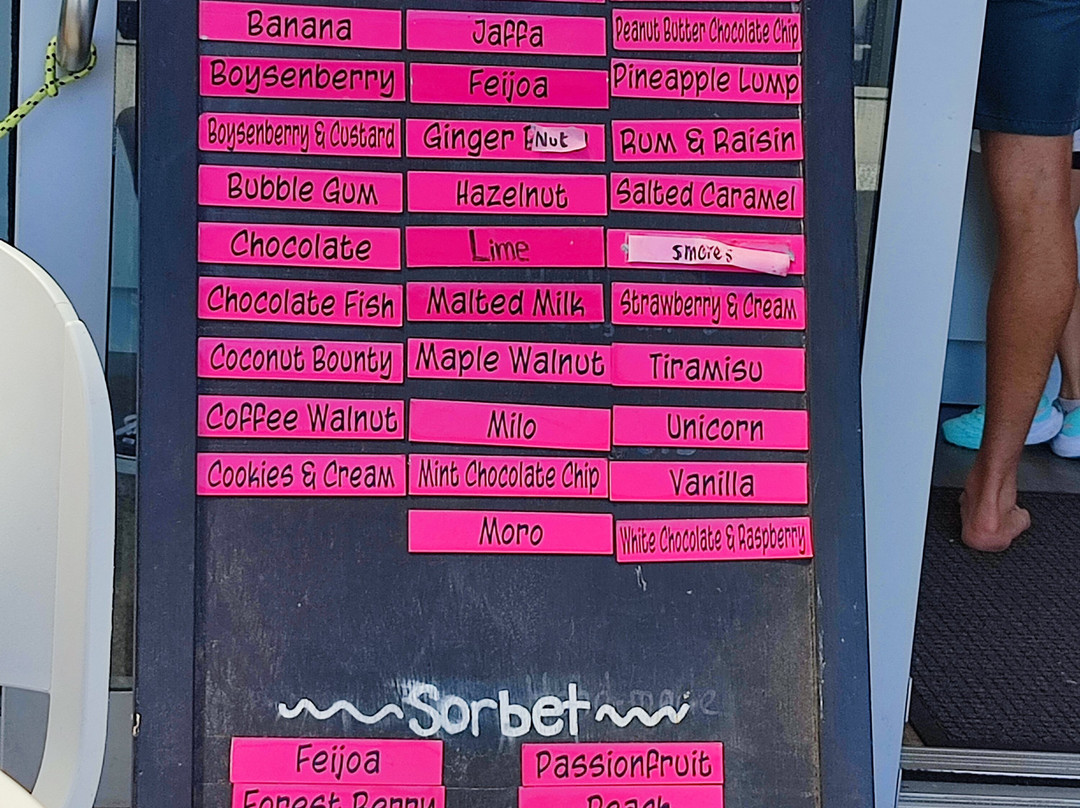 Banana
Boysenberry
Boysenberry & Custard
Bubble Gum
Chocolate
Chocolate Fish
Coconut Bounty
Coffee Walnut
Cookies & Cream
Jaffa
Feijoa
Ginger Nut
Hazelnut
Lime
Malted Milk
Maple Walnut
Milo
Mint Chocolate Chip
Moro
Peanut Butter Chocolate Chip
Pineapple Lump
Rum & Raisin
Salted Caramel
smores
Strawberry & Cream
Tiramisu
Unicorn
Vanilla
White Chocolate & Raspberry
Sorbet
Feijoa
Forest Berry
Passionfruit
Peach